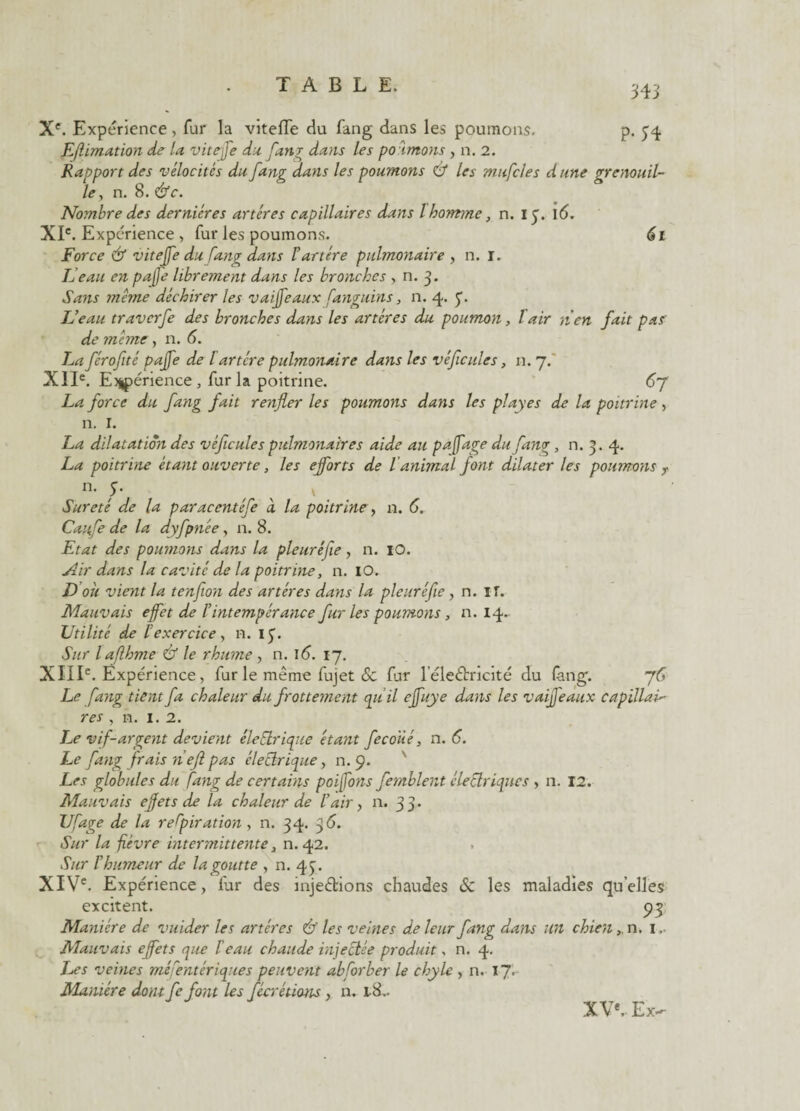 TABLE. 343
Xe. Expérience, ſur la viteſſe du ſang dans les poumons. p. 54
Eſtimation de la viteſſe du ſang dans les poumons, n. 2.
Rapport des vélocités du ſang dans les poumons & les muſcles d'une grenouil-
le, n. 8. &c.
Nombre des derniéres artéres capillaires dans l'homme, n. 15. 16.
XIe. Expérience, ſur les poumons. 61
Force & viteſſe du ſang dans l'artére pulmonaire, n. 1.
L'eau en paſſe librement dans les bronches, n. 3.
Sans même déchirer les vaiſſeaux ſanguins, n. 4. 5.
L'eau traverſe des bronches dans les artéres du poumon, l'air n'en fait pas
de même, n. 6.
La ſéroſité paſſe de l'artére pulmonaire dans les véſicules, n. 7.
XIIe. Expérience, ſur la poitrine. 67
La force du ſang fait renfler les poumons dans les playes de la poitrine,
n. 1.
La dilatation des véſicules pulmonaires aide au paſſage du ſang, n. 3. 4.
La poitrine étant ouverte, les efforts de l'animal font dilater les poumons,
n. 5.
Sureté de la paracentéſe à la poitrine, n. 6.
Cauſe de la dyſpnée, n. 8.
Etat des poumons dans la pleuréſie, n. 10.
Air dans la cavité de la poitrine, n. 10.
D'où vient la tenſion des artéres dans la pleuréſie, n. 11.
Mauvais effet de l'intempérance ſur les poumons, n. 14.
Utilité de l'exercice, n. 15.
Sur l'aſthme & le rhume, n. 16. 17.
XIIIe. Expérience, ſur le même ſujet & ſur l'électricité du ſang. 76
Le ſang tient ſa chaleur du frottement qu'il eſſuye dans les vaiſſeaux capillai-
res, n. 1. 2.
Le vif-argent devient électrique étant ſecoüé, n. 6.
Le ſang frais n'eſt pas électrique, n. 9.
Les globules du ſang de certains poiſſons ſemblent électriques, n. 12.
Mauvais effets de la chaleur de l'air, n. 33.
Uſage de la reſpiration, n. 34. 36.
Sur la fiévre intermittente, n. 42.
Sur l'humeur de la goutte, n. 45.
XIVe. Expérience, ſur des injections chaudes & les maladies qu'elles
excitent. 93
Maniére de vuider les artéres & les veines de leur ſang dans un chien, n. 1.
Mauvais effets que l'eau chaude injectée produit, n. 4.
Les veines méſentériques peuvent abſorber le chyle, n. 17.
Maniére dont ſe font les ſécrétions, n. 18.
XVe. Ex-